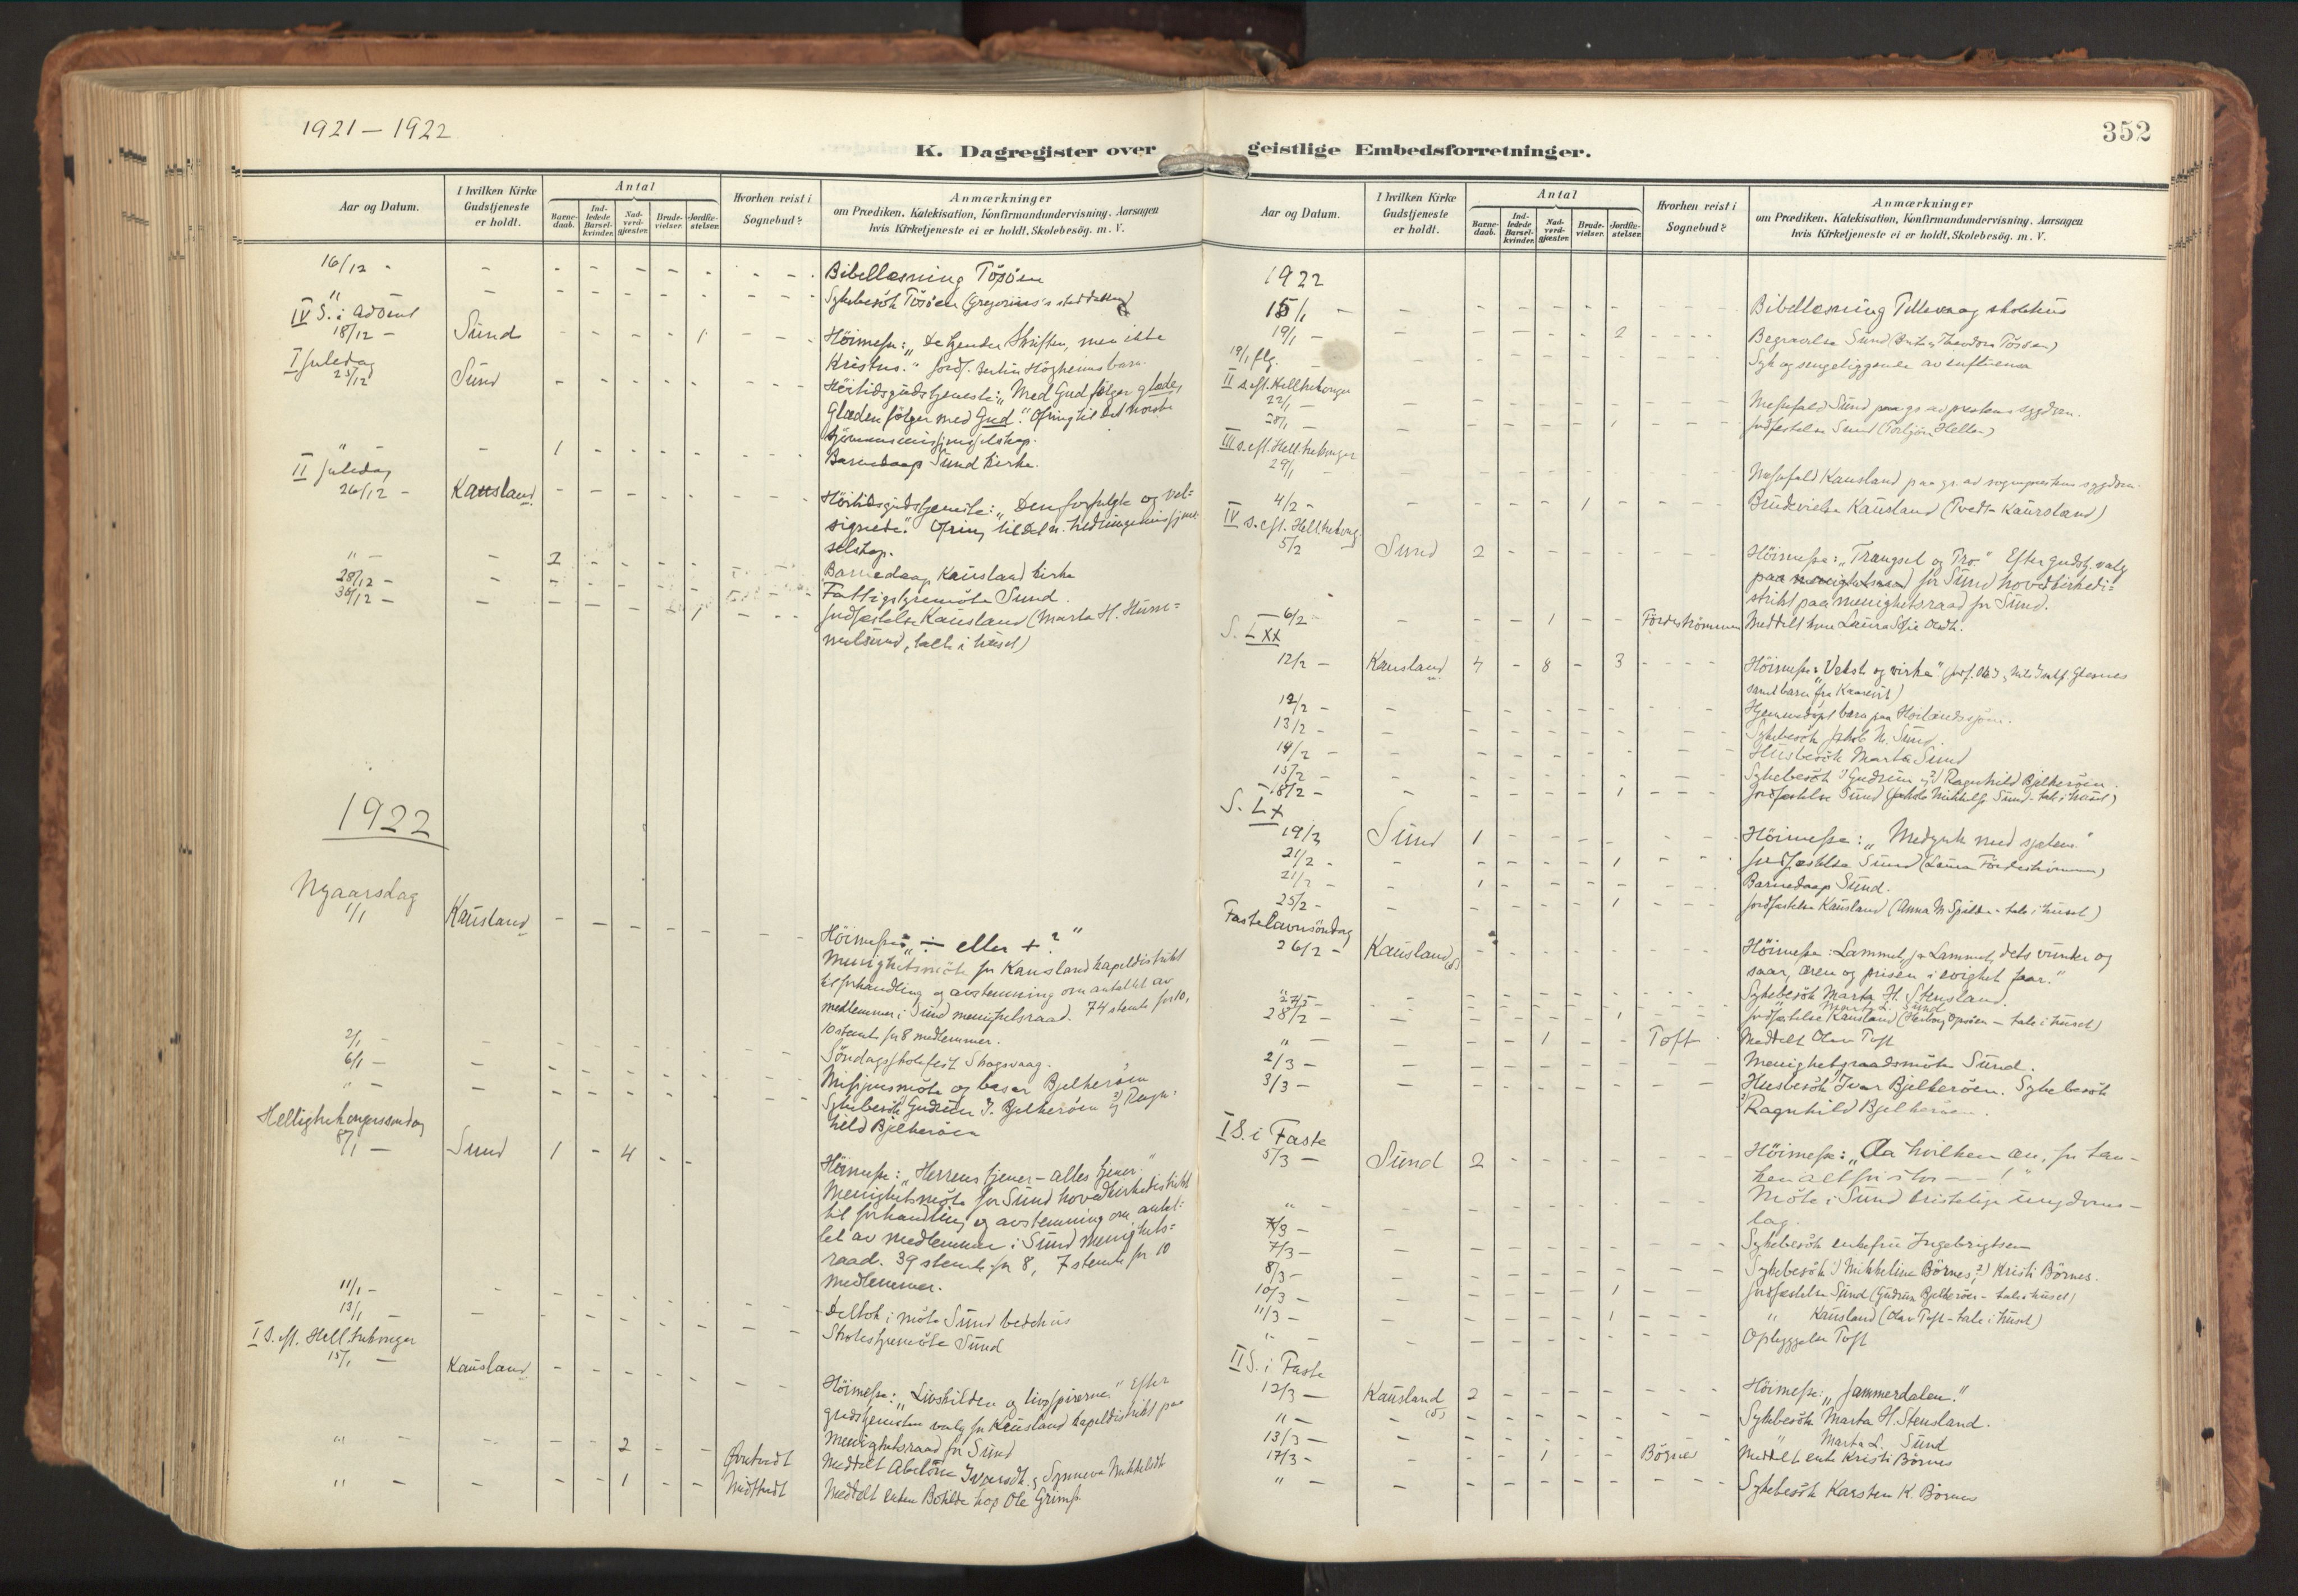 1921 – 1922
352
K. Dagregister over geistlige Embedsforretninger.
Aar og Datum.
I hvilken Kirke Gudstjeneste er holdt.
Antal
Barne-daab.
Ind-ledede Barsel-kvinder.
Nad-verd-gjæster.
Brude-vielser.
Jordfæ-stelser.
Hvorhen reist i Sognebud?
Anmærkninger
om Prædiken, Katekisation, Konfirmandundervisning, Aarsagen
hvis Kirketjeneste ei er holdt, Skolebesög. m. V.
16/12 - Bibellæsning Tösöen
" Sykebesök Tösöen (Gregorius's
IV S. i advent
18/12 - Sund 1 Höimesse: "De kjender Skriften, men ikke
Kristus."
I juledag
25/12 Sund Höitidsgudstjeneste: "Med Gud følger glæde,
Glæden følger med Gud". Ofring til Det norske
sjömannsmissjonsselskap.
" - 1 Barnedaap Sund kirke.
II juledag
26/12 - Kausland Höitidsgudstjeneste: "Den forfulgte og vel=
signede". Ofring til Det n. hedningemissjons
selskap.
" - 2 Barnedaap Kausland kirke
28/12 - Fattigstyremöte Sund.
30/12 - 1 Jordfæstelse Kausland (Marta H. Hum=
melsund, tale i huset)
1922
Nyaarsdag
1/1 Kausland Höimesse: "÷ eller + ?"
Menighetsmöte for Kausland kapeldistrikt
til forhandling og avstemning om antallet av
medlemmer i Sund menighetsraad. 74 stemte for 10,
10 stemte for 8 medlemmer.
2/1 - Söndagsskolefest Skogsvaag.
6/1 - Misjonsmöte og basar Bjelkeröen
" - Sykebesök 1) Gudrun J. Bjelkeröen og 2) Ragn=
hild Bjelkeröen
Helligtrekongerssöndag
8/1 - Sund 1 - 4 Höimesse: "Herrens tjener – alles tjener."
Menighetsmöte for Sund hovedkirkedistrikt
til forhandling og avstemning om antal=
let av medlemmer i Sund menighets=
raad. 39 stemte for 8, 7 stemte for 10
medlemmer.
11/1 - Deltok i möte Sund bedehus
13/1 - Skolestyremöte Sund
I s. eft. Hell.trekonger
15/1 - Kausland Höimesse: "Livskilden og livsspirerne." Efter
gudstjenesten valg for Kausland kapeldistrikt paa
menighetsraad for Sund
" - 2 Övretvedt Meddelt Abelone Ivarsdt. og Synneva Mikkelsdt
" - 1 Midttvedt Meddelt enken Botilda hos Ole Grimss.
Aar og Datum.
I hvilken Kirke Gudstjeneste er holdt.
Antal
Barne-daab.
Ind-ledede Barsel-kvinder.
Nad-verd-gjæster.
Brude-vielser.
Jordfæ-stelser.
Hvorhen reist i Sognebud?
Anmærkninger
om Prædiken, Katekisation, Konfirmandundervisning, Aarsagen
hvis Kirketjeneste ei er holdt, Skolebesög. m. V.
1922
15/1 - Bibellæsning Tellevaag skolehus
19/1 - 2 Begravelse Sund
19/1 flg. Syk og sengeliggende av influensa
II s. eft. Helltrekonger
22/1 - Messefald Sund paa gr. av prestens sygdom.
28/1 - 1 Jordfæstelse Sund (Torbjörn Hellen)
III s. eft. Hell.trekonger
29/1 Messefald Kausland paa gr. av sogneprestens sygdom.
4/2 - 1 Brudevielse Kausland (Tvedt - Kausland)
IV s. eft. Hell.trekong.
5/2 Sund 2 Höimesse: "Trængsel og Tro." Efter gudstj. valg
paa menighetsraad for Sund hovedkirkedi=
strikt paa menighetsraad for Sund.
6/2 - 1 Fördeströmmen Meddelt
S. LXX
12/2 - Kausland 4 - 8 - 3 Höimesse: "Vekst og virke"
samt barn fra
12/2 - Hjemmedöpt barn paa
13/2 - Sykebesök Jakob M. Sund.
14/2 - Husbesök Marta Sund
15/2 - Sykebesök 1) Gudrun og 2) Ragnhild Bjelkeröen.
18/2 - 1 Jordfæstelse Sund (Jakob Mikkelss. Sund - tale i huset)
S. LX
19/2 Sund 1 Höimesse: "Medynk med sjælen."
21/2 - 1 Jordfæstelse Sund (Laura Fördeströmmen)
21/2 - 1 Barnedaap Sund.
25/2 - 1 Jordfæstelse Kausland (Anna M. Spilde - tale i huset)
Fastelavnsöndag
26/2 - Kausland Höimesse: Lammet, ja Lammet, dets vunder og
saar, æren og prisen i evighet faar."
" Sykebesök Marta H. Stensland.
27/2 - " Marta L. Sund
28/2 - 1 Jordfæstelse Kausland ( - tale i huset)
" - 1 Toft Meddelt Olav Toft
2/3 - Menighetsraadsmöte Sund.
3/3 - Husbesök Ivar Bjelkeröen. Sykebesök
Ragnhild Bjelkeröen.
I S. i Faste
5/3 - Sund 2 Höimesse: "Aa hvilken ære, for tan-
ken alt for stor – – !"
" - Möte i Sund kristelige ungdoms-
lag.
7/3 - Sykebesök enkefru Ingebrigtsen
7/3 - Sykebesök 1) Mikkeline Börnes, 2) Kristi Börnes.
8/3 - 1 Jordfæstelse Sund (Gudrun Bjelkeröen - tale i huset)
10/3 - 1 " Kausland (Olav Toft - tale i huset)
11/3 - Opbyggelse Toft
" -
II S. i Faste
12/3 - Kausland 2 Höimesse: "Jammerdalen."
" - Sykebesök Marta H. Stensland.
13/3 - " Marta L. Sund
17/3 - 1 Börnes Meddelt enke Kristi Börnes
" - Sykebesök Karsten K. Börnes